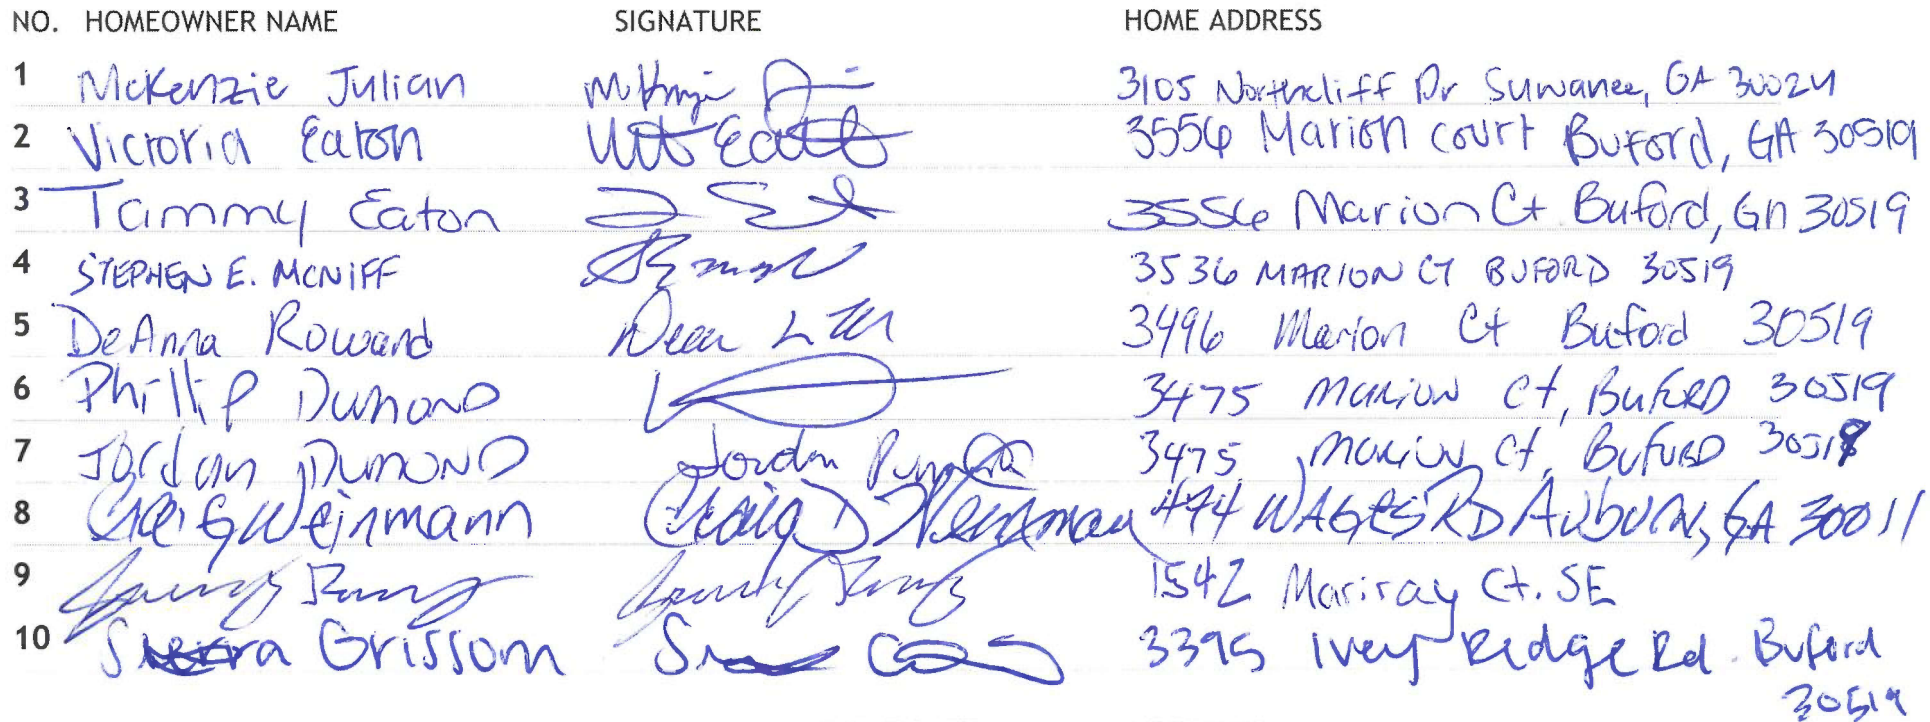 NO. HOMEOWNER NAME SIGNATURE HOME ADDRESS
1 McKenzie Julian 3105 Northcliff Dr Suwanee, GA 30024
2 Victoria Eaton 3556 Marion court Buford, GA 30519
3 Tammy Eaton 3556 Marion Ct Buford, GA 30519
4 STEPHEN E. MCNIFF 3536 MARION CT BUFORD 30519
5 DeAnna Roward 3496 Marion Ct Buford 30519
6 Phillip Dumond 3475 Marion Ct, Buford 30519
7 Jordan Dumond Jordan 3475 Marion Ct, Buford 30519
8 Craig Weinmann Craig D Weinmann 474 WAGES RD Auburn, GA 30011
9 1542 Mariray Ct. SE
10 Sierra Grissom 3395 Ivey Ridge Rd. Buford
30519